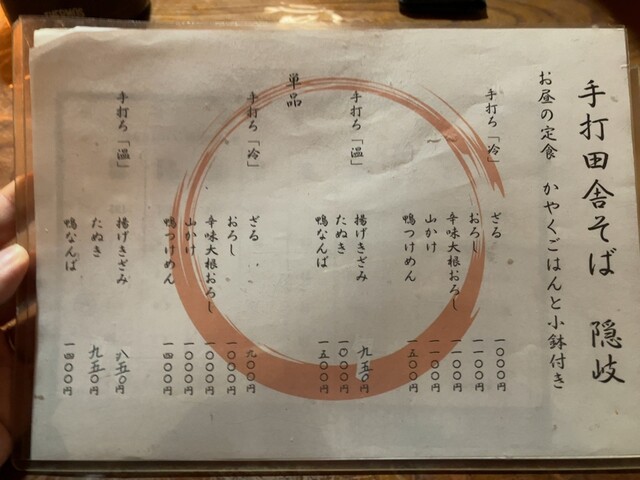 手打田舎そば　隠岐
お昼の定食　かやくごはんと小鉢付き
手打ち「冷」
ざる　一〇〇〇円
おろし　一一〇〇円
辛味大根おろし　一一〇〇円
山かけ　一一〇〇円
鴨つけめん　一五〇〇円
手打ち「温」
揚げきざみ　九五〇円
たぬき　一〇〇〇円
鴨なんば　一五〇〇円
単品
手打ち「冷」
ざる　九〇〇円
おろし　一〇〇〇円
辛味大根おろし　一〇〇〇円
山かけ　一〇〇〇円
鴨つけめん　一四〇〇円
手打ち「温」
揚げきざみ　八五〇円
たぬき　九五〇円
鴨なんば　一四〇〇円